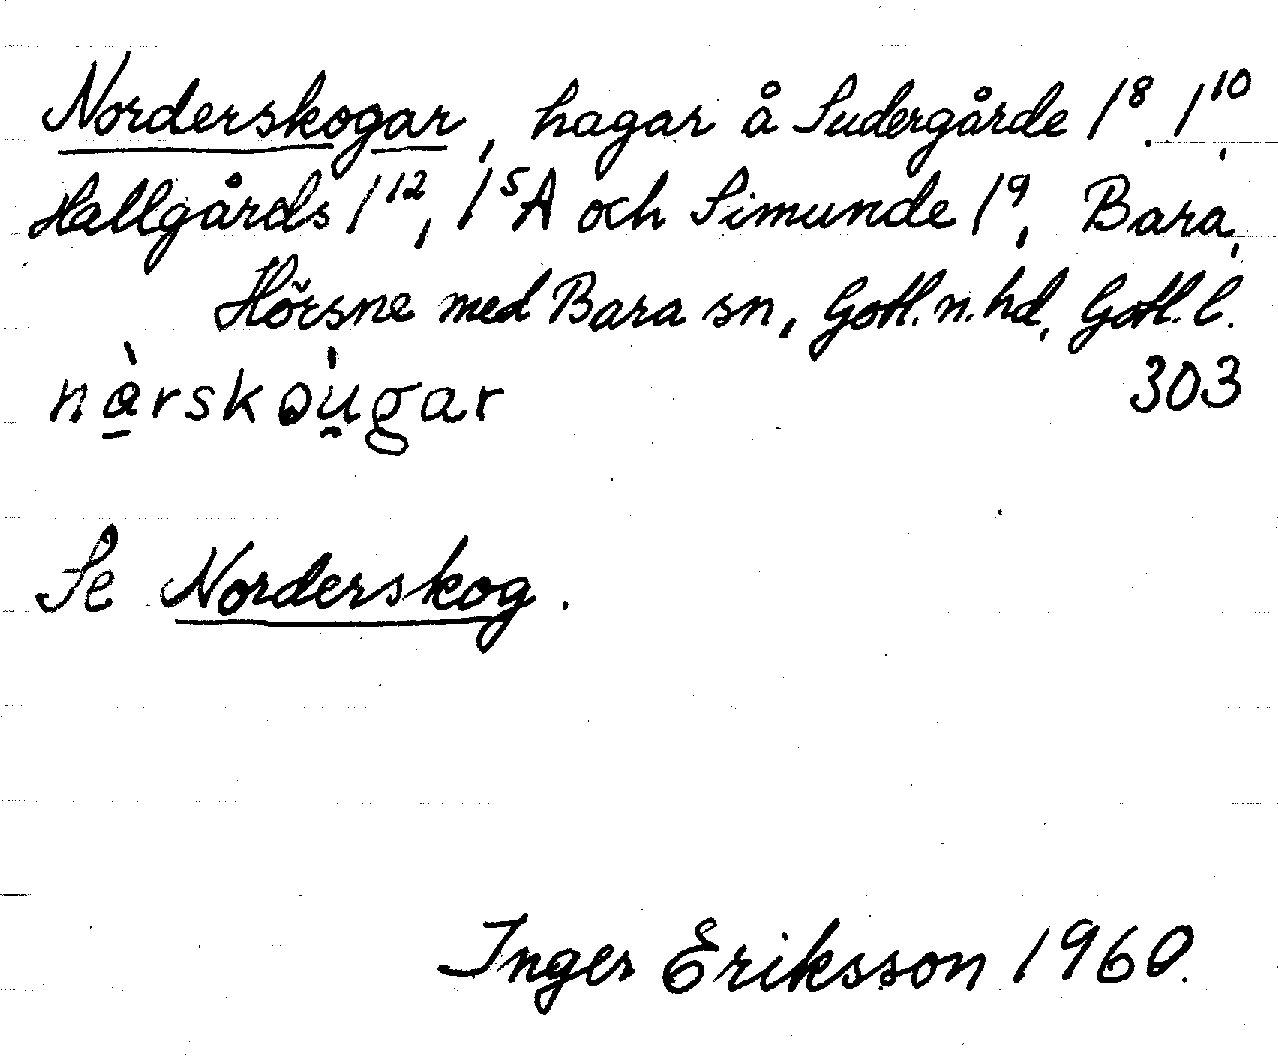 Norderskogar, hagar å Sudergårde 1⁸. 1¹⁰,
Hallgårds 1¹², 1⁵A och Simunde 1⁹, Bara,
Hörsne med Bara sn, Gotl. n. hd, Gotl. l.
303
nàrskòu̯gar
Se Norderskog.
Inger Eriksson 1960.